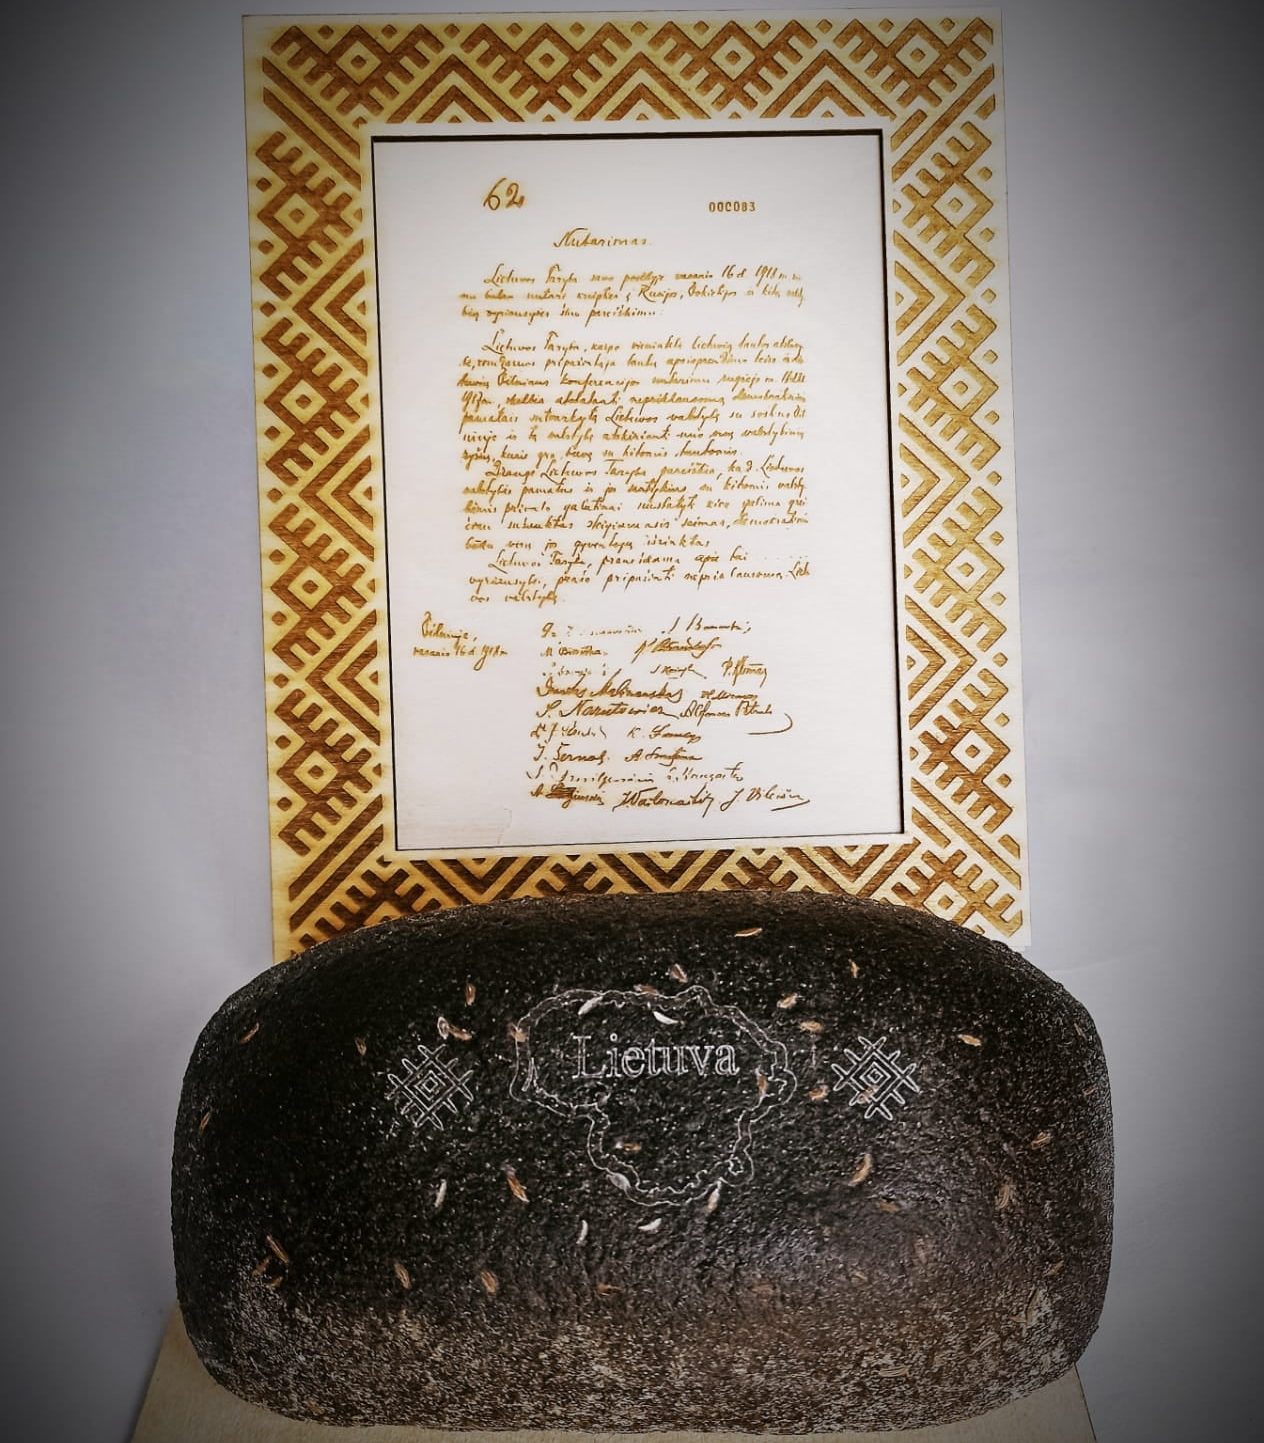 62
000083
Nutarimas.
Lietuvos Taryba savo posėdyje vasario 16 d. 1918 m. vie
nu balsu nutarė kreiptis į Rusijos, Vokietijos ir kitų vals
bių vyriausybes šiuo pareiškimu:
Lietuvos Taryba, kaipo vienintelė lietuvių tautos atstovy
bė, remdamos pripažintąja tautų apsisprendimo teise ir lie
tuvių Vilniaus konferencijos nutarimu rugsėjo m. 18-23 d.
1917 m. skelbia atstatanti nepriklausomą demokratiniais
pamatais sutvarkytą Lietuvos valstybę su sostine Vil
niuje ir tą valstybę atskirianti nuo visų valstybinių
ryšių, kurie yra buvę su kitomis tautomis.
Drauge Lietuvos Taryba pareiškia, kad Lietuvos
valstybės pamatus ir jos santykius su kitomis valsty
bėmis privalo galutinai nustatyti kiek galima grei
čiau sušauktas steigiamasis seimas, demokratiniu
būdu visų jos gyventojų išrinktas.
Lietuvos Taryba, pranešdama apie tai
vyriausybei, prašo pripažinti nepriklausomą Lietu
vos valstybę.
Vilniuje,
vasario 16 d. 1918 m.
J. Basanavičius S. Banaitis
M. Biržiška K. Bizauskas
P. Klimas
Donatas Malinauskas Vl. Mironas
S. Narutowicz Alfonsas Petrulis
K. Šaulys
J. Šernas A. Smetona
J. Smilgevičius
J. Vailokaitis J. Vileišis
Lietuva